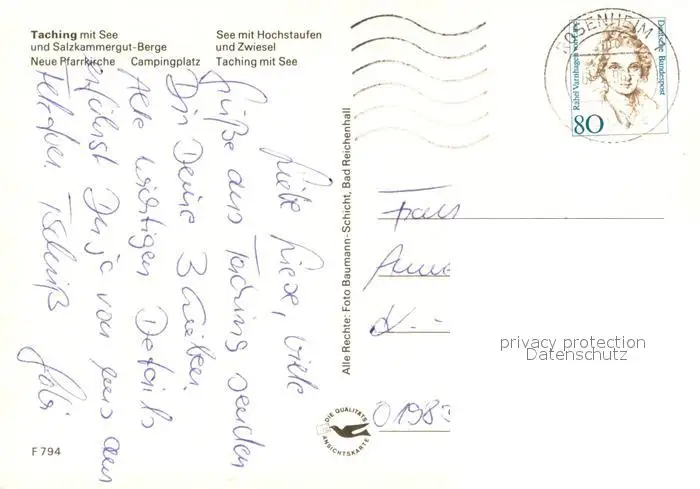 Taching mit See
und Salzkammergut-Berge
Neue Pfarrkirche Campingplatz
See mit Hochstaufen
und Zwiesel
Taching mit See
ROSENHEIM 1
Rahel Varnhagen von Ense
Deutsche Bundespost
80
Liebe Liese, viele
Grüße aus Taching senden
Dir Deine 3 
Alle wichtigen Details
erfährst Du ja von uns am
Telefon. Tschüß
Alle Rechte: Foto Baumann-Schicht, Bad Reichenhall
Frau
Anne
O 1983
privacy protection
Datenschutz
DIE QUALITÄTS
ANSICHTSKARTE
F 794